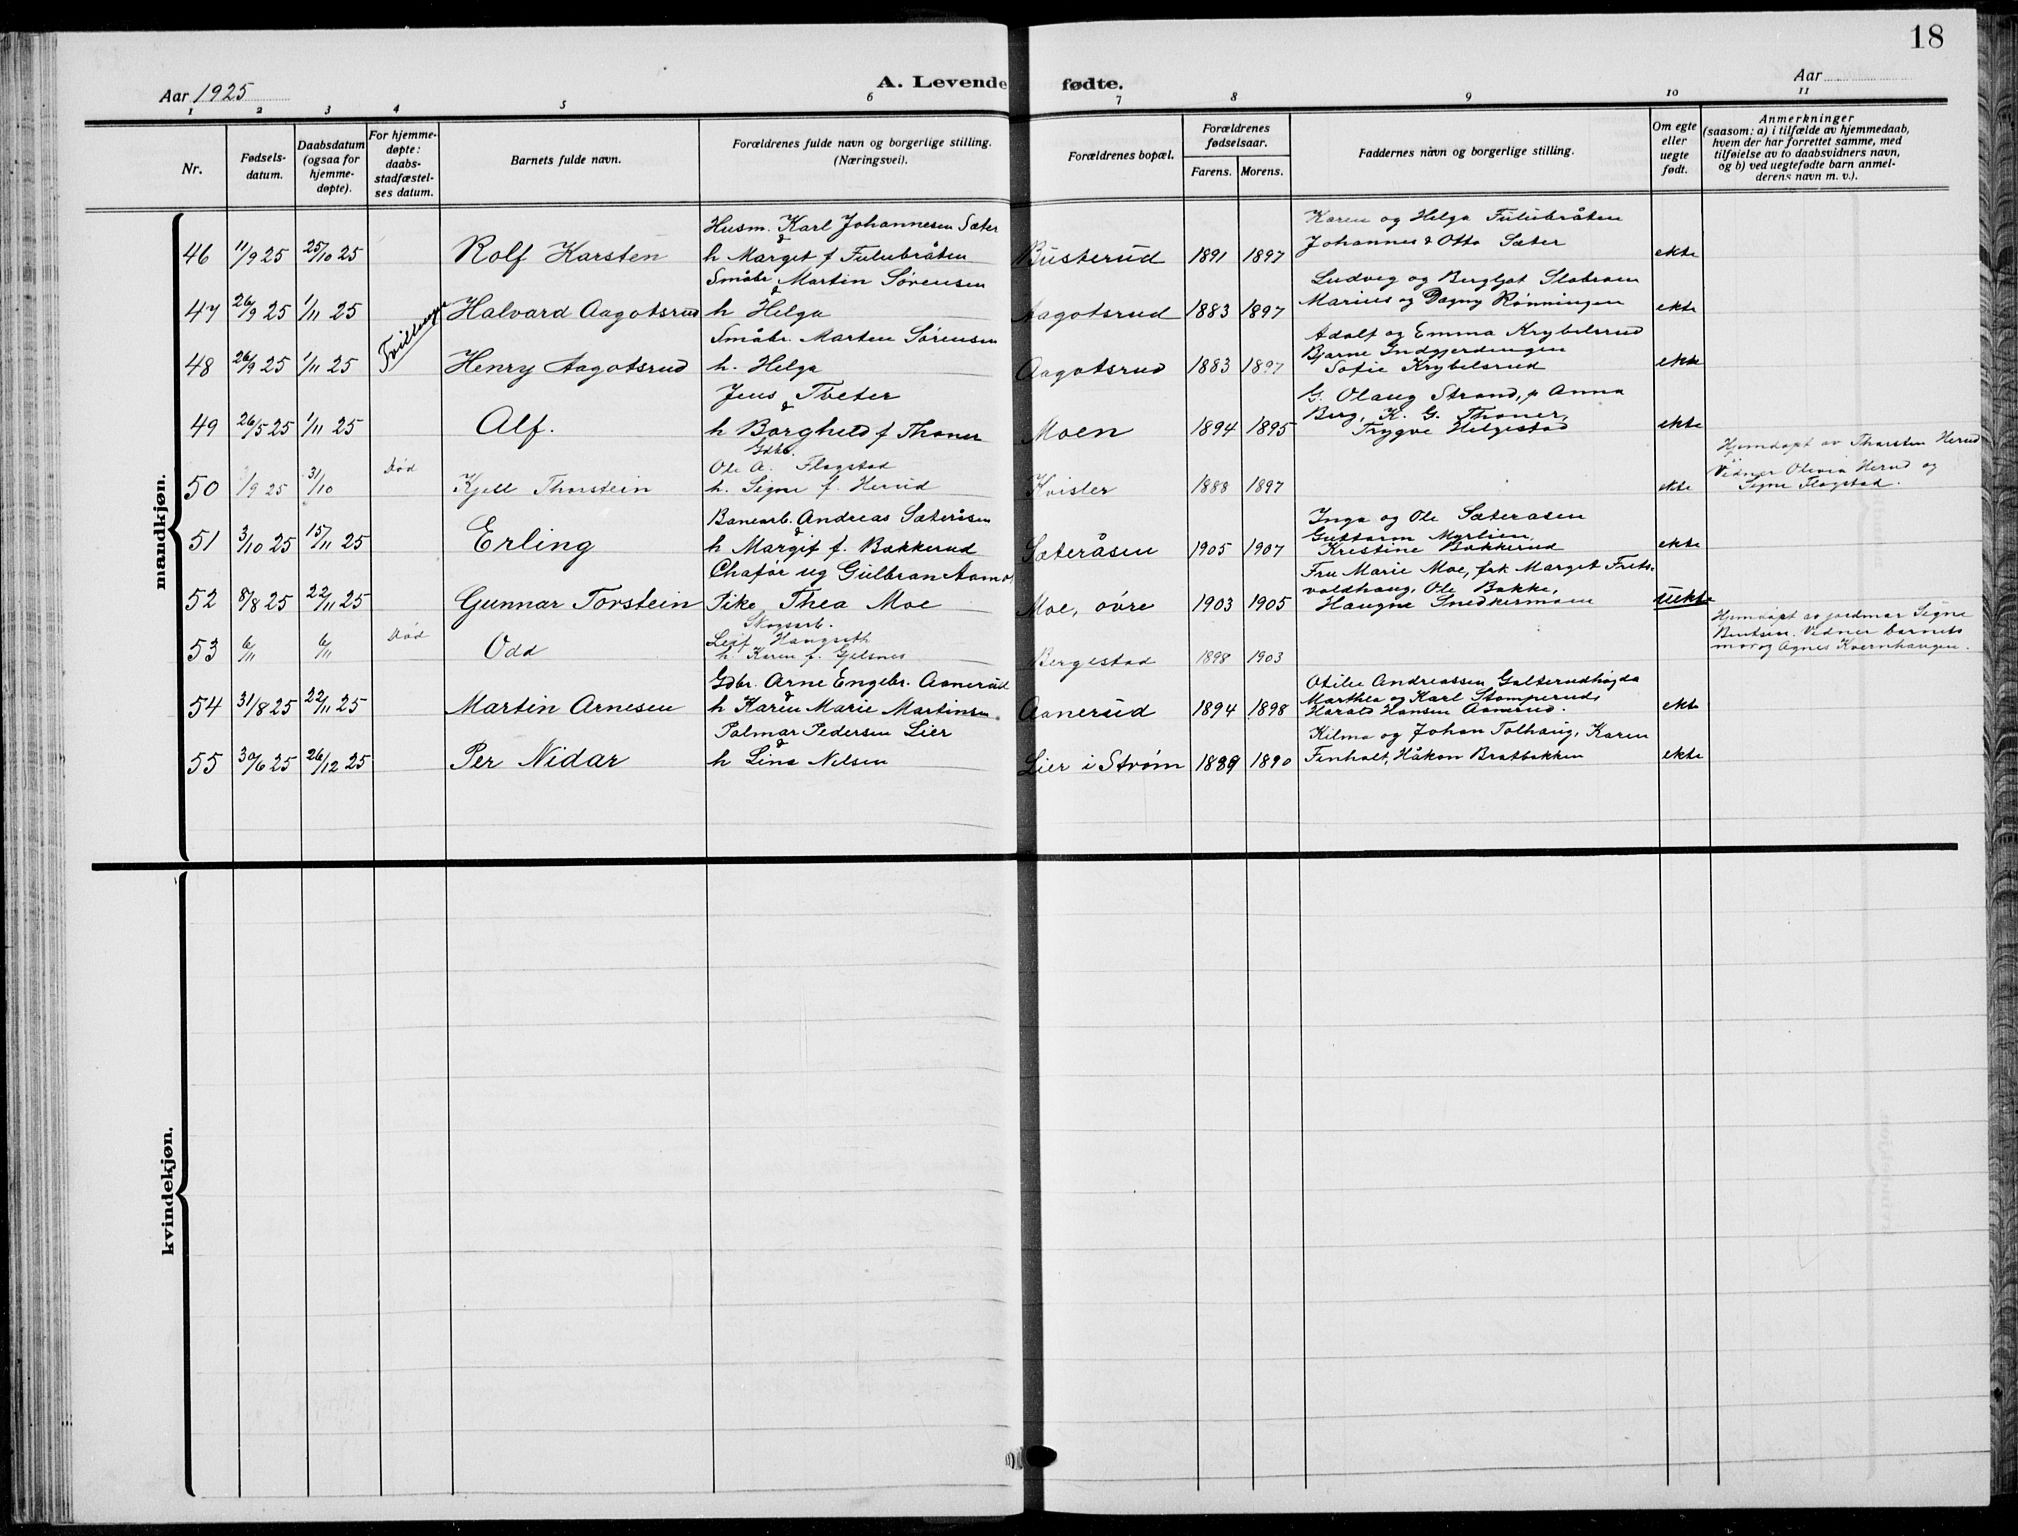 18
A. Levende fødte.
Aar 1925
Aar
1 2 3 4 5 6 7 8 9 10 11
Nr.
Fødsels-
datum.
Daabsdatum
(ogsaa for
hjemme-
døpte).
For hjemme-
døpte:
daabs-
stadfæstel-
ses datum.
Barnets fulde navn.
Forældrenes fulde navn og borgerlige stilling.
(Næringsvei).
Forældrenes bopæl.
Forældrenes
fødselsaar.
Farens. Morens.
Faddernes navn og borgerlige stilling.
Om egte
eller
uegte
født.
Anmerkninger
(saasom: a) i tilfælde av hjemmedaab,
hvem der har forrettet samme, med
tilføielse av to daabsvidners navn,
og b) ved uegtefødte barn anmel-
derens navn m. v.).
mandkjøn.
Husm. Karl Johannesen Sæter
Karen og Helga Fulubråten
46 11/9 25 25/10 25 Rolf Karsten & h Marget f Fulubråten Busterud 1891 1897 Johannes & Otto Sæter ekte
Småbr Martin Sørensen
Ludvig og Bergljot Slobraen
47 26/9 25 1/11 25 Tvillinger Halvard Aagotsrud & h Helga Aagotsrud 1883 1897 Marius og Dagny Rønningen ekte
Småbr. Marten Sørensen
Adolf og Emma Krybelsrud
Bjarne Indgjerdingen
48 26/9 25 1/11 25 Henry Aagotsrud h. Helga Aagotsrud 1883 1897 Sofie Krybelsrud ekte
Jens Tveter
G. Olaug Strand, p Anna
Berg, K. G. Thoner,
49 26/5 25 1/11 25 Alf. & h Borghild f Thoner Moen 1894 1895 Trygve Helgestad ekte
Gdbr.
Ole A. Flagstad
Hjemdøpt av Thorsten Herud
Vidner Olivia Herud og
50 1/9 25 31/10 Død Kjell Thorstein h. Signe f. Herud Kvisler 1888 1897 ekte Signe Flagstad.
Banearb. Andreas Sæteråsen
Inga og Ole Sæteråsen
Guttorm Myrlien,
51 3/10 25 15/11 25 Erling & h Margit f. Bakkerud Sæteråsen 1905 1907 Kristine Bakkerud ekte
Chafør ug Gulbran Aamo
Fru Marie Moe, frk Marget Frits-
voldhaug, Ole Bakke,
52 8/8 25 22/11 25 Gunnar Torstein Pike Thea Moe Moe, øvre 1903 1905 Haugne Snedkermoen uekte
Skogsarb.
Leif Haugseth
Hjemdøpt av jordmor Signe
Bentsen. Vidner barnets
53 6/11 6/11 Død Odd h. Karen f. Gjelsnes Bergestad 1898 1903 mor og Agnes Kvernhaugen.
Gdbr. Arne Engebr. Aanerud
Otilie Andreassen Galterudhøgda
Marthea og Karl Stomperud,
54 31/8 25 22/11 25 Martin Arnesen & h Karen Marie Martinsen Aanerud 1894 1898 Harald Hansen Aanerud. ekte
Palmar Pedersen Lier
Hilma og Johan Tolhaug, Karen
55 30/6 25 26/12 25 Per Nidar & h Lina Nilsen Lier i Strøm 1889 1890 Finholt, Håkon Bratbakken ekte
kvindekjøn.